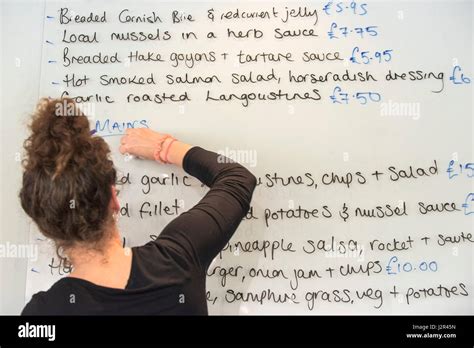 - Breaded Cornish Brie & redcurrent jelly £5.95
- Local mussels in a herb sauce £7.75
- Breaded Hake goujons + tartare sauce £5.95
- Hot Smoked Salmon Salad, horseradish dressing £6
Garlic roasted Langoustines, £7.50
MAINS
garlic
ustines, chips + salad £15
fillet
potatoes & mussel sauce £
pineapple salsa, rocket + saute
rger, onion jam + chips £10.00
e, samphire grass, veg + potatoes
alamy
Image ID: J2R45N
www.alamy.com